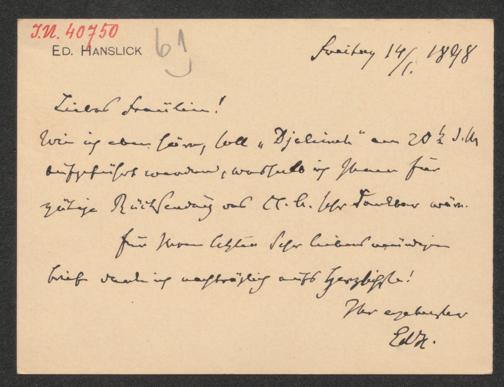 I.N. 40750
ED. HANSLICK
61
Freitag 14/1. 1898
Liebes Fräulein!
Wie ich eben höre, soll „Djelileh“ am 20t d. M.
aufgeführt werden, weshalb ich Ihnen für
gütige Rücksendung des Cl. A. sehr dankbar wäre.
Für Ihren letzten sehr liebenswürdigen
Brief dank ich nachträglich aufs Herzlichste!
Ihr ergebenster
EdH.